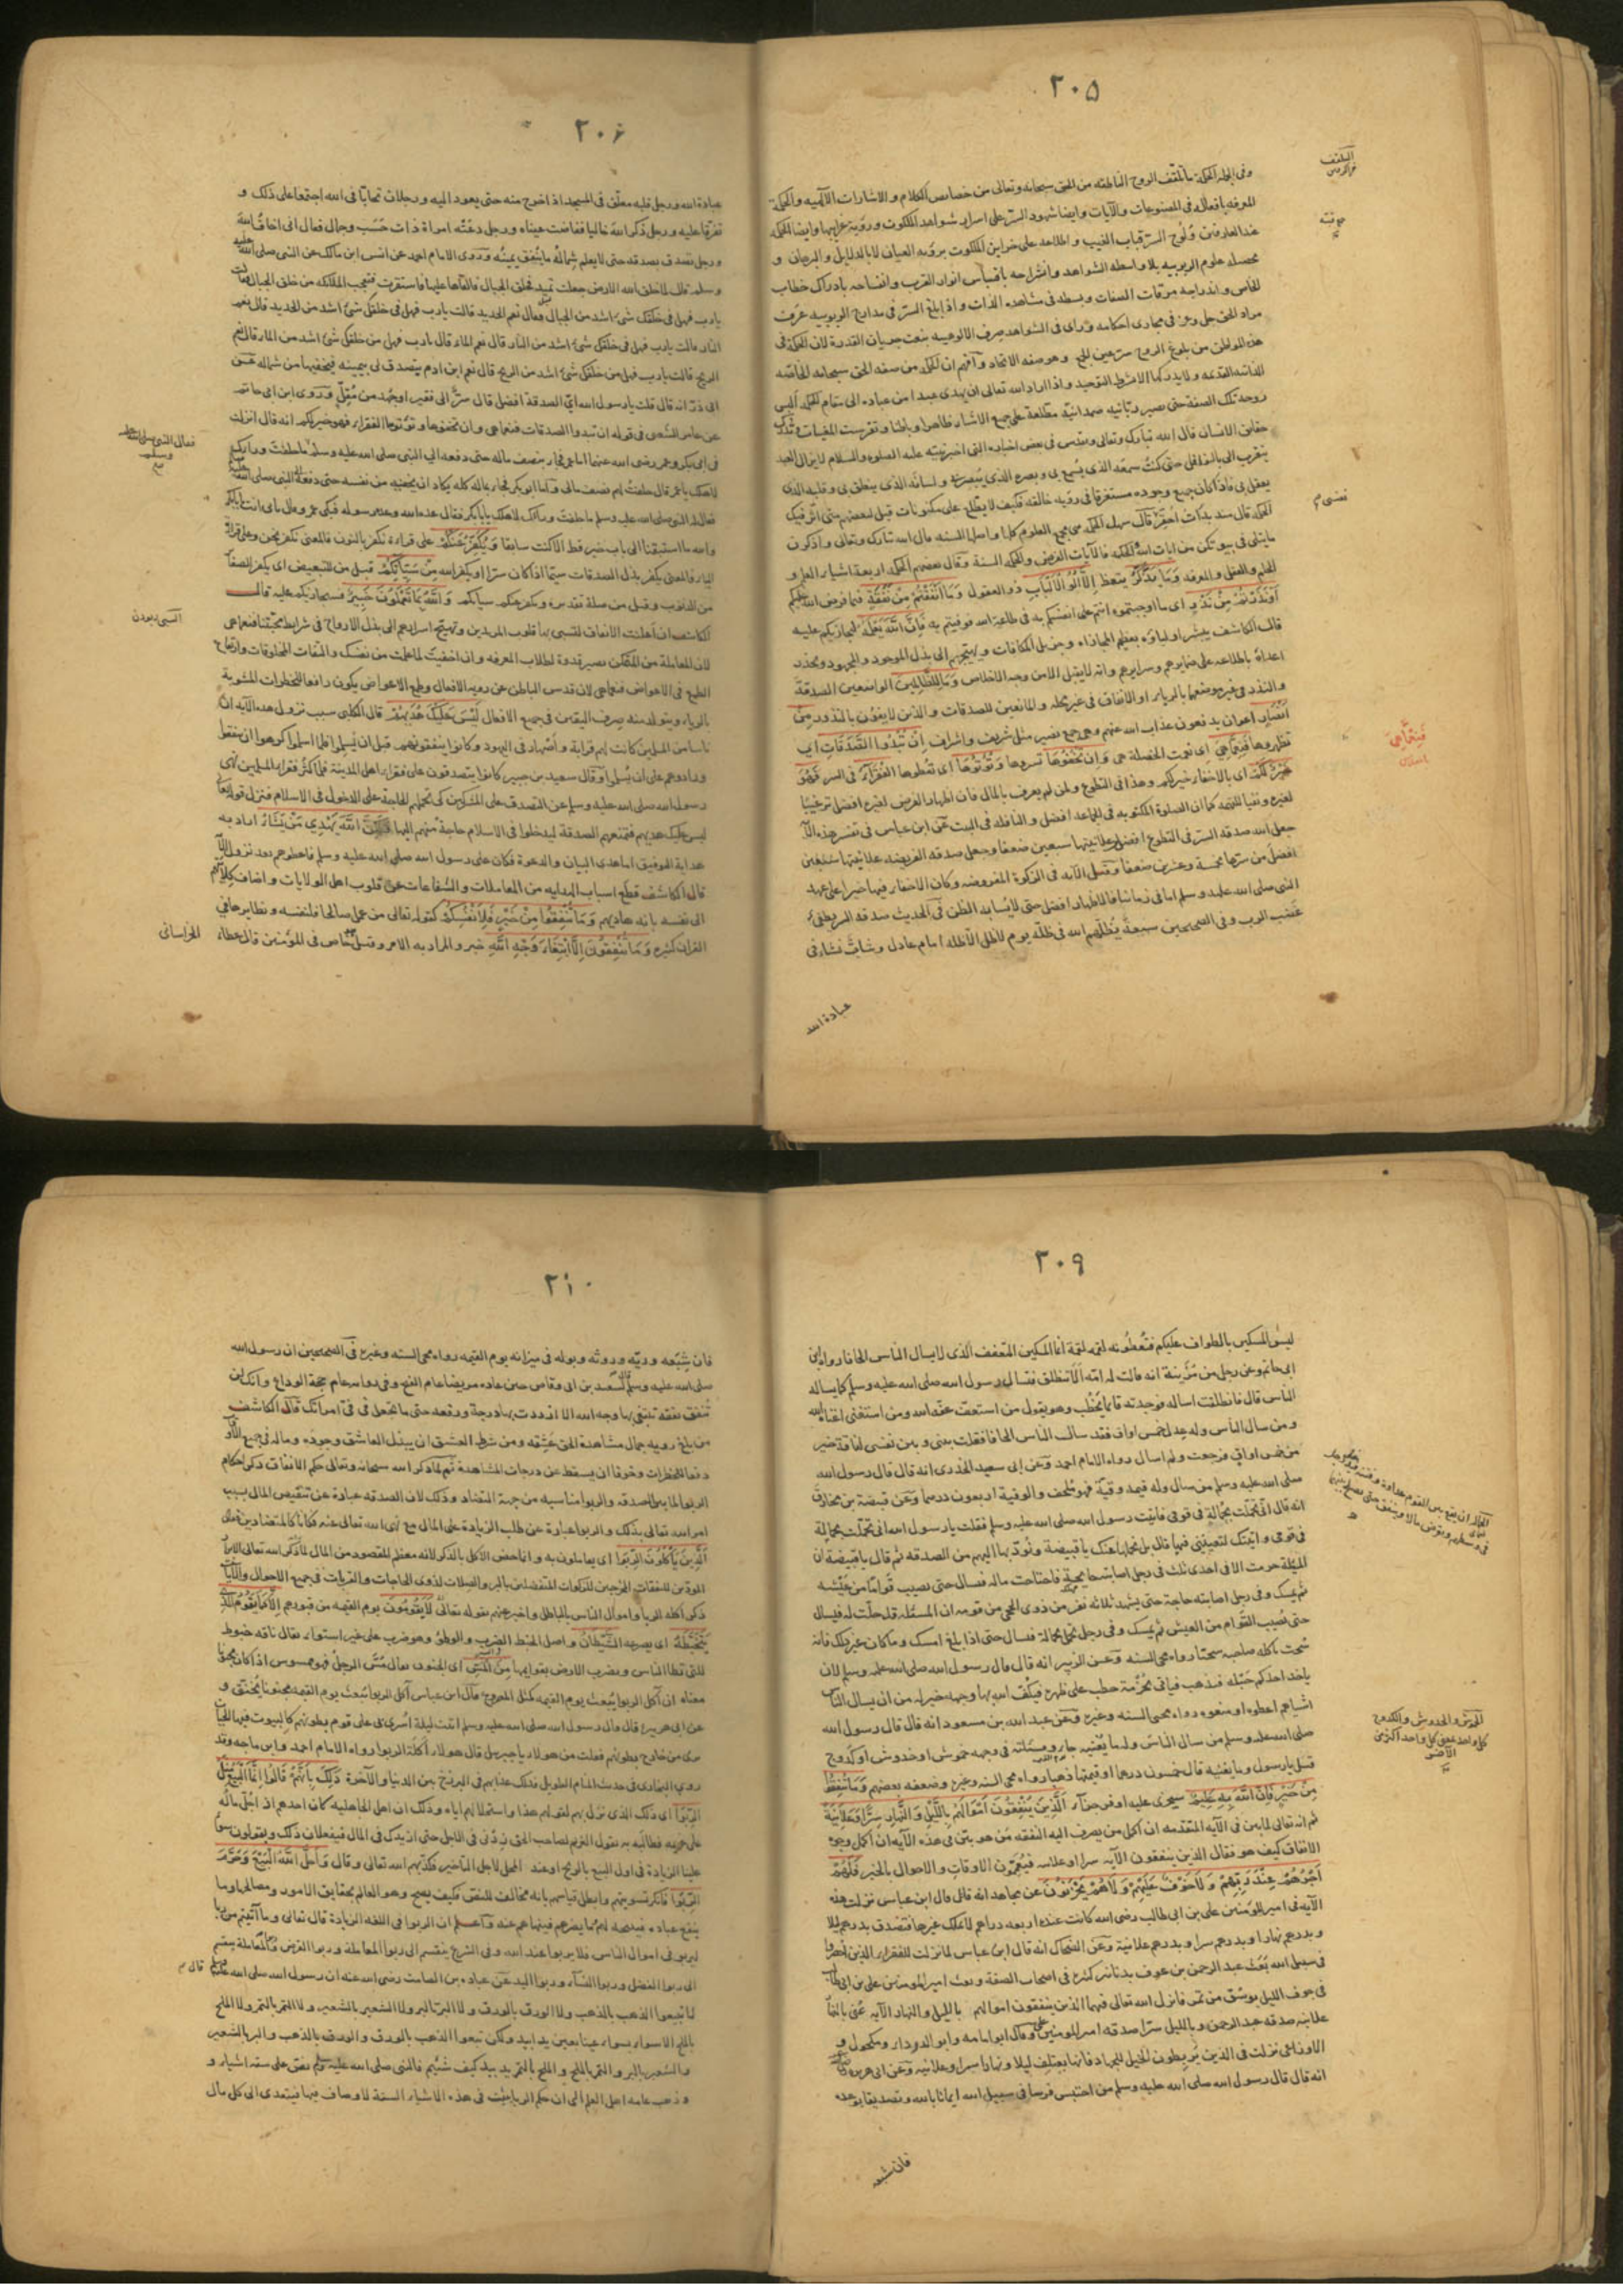 ٢٠٥
وفى الجملة الحكمة ما تلقف الروح الناطقة من الحق سبحانه وتعالى من خصائص الكلام والاشارات الالهية والحكمة
المعرفه بافعاله فى المصنوعات والآيات وايضا شهود السر على اسرار شواهد الملكوت وروية غرايبها وايضا الحكمة
عند العارفين ولوج السر قباب الغيب واطلاعه على خزاين الملكوت بروية العيان لا بالدلايل والبرهان و
محصله علوم الربوبيه بلا واسطة الشواهد وانشراحه باقتباس انوار القرب وانفساحه بادراك خطاب
مراد الحق جل وعز فى مجارى احكامه ورأى فى الشواهد صرف الالوهية بنعت جريان القدرة لان الحكمة فى
روحه تلك الصفة حتى يصير ربانيه صمدانية مطلعة على جميع الاشياء ظاهرا وباطنا وتفرست المغيبات وتدرك
حقايق الانسان قال الله تبارك وتعالى وتقدس فى بعض اخباره التى اخبر نبيه عليه الصلوة والسلام لا يزال العبد
يتقرب الى بالنوافل حتى كنت سمعه الذى يسمع بى وبصره الذى يبصر به ولسانه الذى ينطق بى وقلبه الذى
يعقل بى فاذا كان جميع وجوده مستغرقا فى روية خالقه فكيف لا يطلع على مكنونات
الحكمة قال سهل الحكمة هى مجمع العلوم كلها واصلها السنة قال الله تبارك وتعالى واذكرن
ما يتلى فى بيوتكن من آيات الله والحكمة فالآيات الفرض والحكمة السنة وقال بعضهم الحكمة اربعة اشياء العلم و
الحلم والعقل والمعرفه وَمَا يَذَّكَّرُ يتعظ اِلَّا اُولُوا الْاَلْبَابِ ذو العقول وَمَا اَنْفَقْتُمْ مِنْ نَفَقَةٍ فيما فرض الله عليكم
اَوْ نَذَرْتُمْ مِنْ نَذْرٍ اى ما اوجبتموه انتم على انفسكم به فى طاعة الله فوفيتم به فَاِنَّ اللّٰهَ يَعْلَمُهُ فيجازيكم عليه
قال الكاشف يبشر اولياؤه بعظيم المجازاه وجزيل المكافات ويهيجهم الى بذل الموجود والمجهود ويحذر
اعداءه باطلاعه على ضمايرهم وسرايرهم وانه لا يقبل الا من وجه الاخلاص وَمَا لِلظَّالِمِينَ الواضعين الصدقة
والنذر فى غير موضعها بالرياء او الانفاق فى غير محله والمانعين للصدقات والذين لا يفون بالنذور مِنْ
اَنْصَارٍ اعوان يدفعون عذاب الله عنهم وهى جمع نصير مثل شريف واشراف اِنْ تُبْدُوا الصَّدَقَاتِ اى
تظهروها فَنِعِمَّا هِيَ اى نعمت الخصلة هى وَاِنْ تُخْفُوهَا تسروها وَتُؤْتُوهَا اى تعطوها الْفُقَرَاءَ فى السر فَهُوَ
خَيْرٌ لَكُمْ اى بالاخفاء خير لكم وهذا فى التطوع ولمن لم يعرف بالمال فان اظهار الفرض لغيره افضل ترغيبا
لغيره ونفيا للتهمة كما ان الصلوة المكتوبه فى الجماعة افضل والنافلة فى البيت عن ابن عباس فى تفسير هذه الآ
جعل الله صدقه السر فى التطوع افضل من علانيتها سبعين ضعفا وجعل صدقه الفريضه علانيتها
افضل من سرها بخمسة وعشرين ضعفا وقيل الآيه فى الزكوة المفروضه وكان الاخفاء فيها خيرا على عهد
النبى صلى الله عليه وسلم اما فى زماننا فالاظهار افضل حتى لا يساء به الظن فى الحديث صدقه السر تطفئ
غضب الرب وفى الصحيحين سبعة يظلهم الله فى ظله يوم لا ظل الا ظله امام عادل وشاب نشأ فى
عبادة الله
فَنِعِمَّا هِيَ
٢٠۶
عبادة الله ورجل قلبه معلق فى المسجد اذا خرج منه حتى يعود اليه ورجلان تحابا فى الله اجتمعا على ذلك و
تفرقا عليه ورجل ذكر الله خاليا ففاضت عيناه ورجل دعته امراة ذات حسب وجمال فقال انى اخاف الله
ورجل تصدق بصدقه حتى لا يعلم شماله ما ينفق يمينه وروى الامام احمد عن انس ابن مالك عن النبى صلى الله عليه
وسلم قال لما خلق الله الارض جعلت تميد فخلق الجبال فالقاها عليها فاستقرت فتعجب الملائكة من خلق الجبال فقالت
يا رب فهل فى خلقك شئ اشد من الجبال فقال نعم الحديد قالت يا رب فهل فى خلقك شئ اشد من الحديد قال نعم
النار قالت يا رب فهل فى خلقك شئ اشد من النار قال نعم الماء قال يا رب فهل من خلقك شئ اشد من الماء قال نعم
الريح قالت يا رب فهل من خلقك شئ اشد من الريح قال نعم ابن ادم يتصدق بيمينه فيخفيها من شماله عن
ابى ذر انه قال قلت يا رسول الله اى الصدقة افضل قال سر الى فقير او جهد من مقل وروى ابن ابى حاتم
عن عامر الشعبى فى قوله ان تبدوا الصدقات فنعما هى وان تخفوها وتؤتوها الفقراء فهو خير لكم انه قال انزلت
فى ابى بكر وعمر رضى الله عنهما اما عمر فجاء بنصف ماله حتى دفعه الى النبى صلى الله عليه وسلم ما خلفت وراءك
لاهلك يا عمر قال خلفت لهم نصف مالى واما ابو بكر فجاء بماله كله يكاد ان يخفيه من نفسه حتى دفعه الى النبى صلى الله عليه
فقال له النبى صلى الله عليه وسلم ما خلفت وراءك لاهلك يا ابا بكر فقال عدة الله وعدة رسوله فبكى عمر وقال بابى انت يا ابا بكر
والله ما استبقنا الى باب خير قط الا كنت سابقا وَيُكَفِّرُ عَنْكُمْ على قراءة نكفر بالنون فالمعنى نكفر نحن وعلى قراة
الياء فالمعنى يكفر بذل الصدقات سيما اذا كان سرا او يكفر الله مِنْ سَيِّاٰتِكُمْ قيل من للتبعيض اى يكفر الصغا
من الذنوب وقيل من صلة تقديره ويكفر عنكم سياتكم وَاللّٰهُ بِمَا تَعْمَلُونَ خَبِيرٌ فيجازيكم عليه قال
الكاشف ان اعلنت الانفاق
الطمع فى الاعواض فنعما هى لان قدس الباطن عن روية الافعال وطمع الاعواض يكون رافعا للخطرات المشوبة
بالرياء ويتولد منه صرف اليقين فى جميع الافعال لَيْسَ عَلَيْكَ هُدٰيهُمْ قال الكلبى سبب نزول هذه الآيه ان
ناسا من المسلمين كانت لهم قرابة واصهار فى اليهود وكانوا ينفقونهم قبل ان يسلموا فلما اسلموا كرهوا ان ينفعو
وراودوهم على ان يسلموا وقال سعيد بن جبير كانوا يتصدقون على فقراء اهل المدينة فلما كثر فقراء المسلمين نهى
رسول الله صلى الله عليه وسلم عن التصدق على المشركين كى تحملهم الحاجة على الدخول فى الاسلام فنزل قوله تعا
ليس عليك هديهم فتمنعهم الصدقة ليدخلوا فى الاسلام حاجة منهم اليها وَلٰكِنَّ اللّٰهَ يَهْدِي مَنْ يَشَاءُ اراد به
هداية التوفيق اما هدى البيان والدعوة فكان على رسول الله صلى الله عليه وسلم فاعطوهم بعد نزول الآ
قال الكاشف قطع اسباب الهدايه من المعاملات والشفاعات عن قلوب اهل الولايات واضاف
الى نفسه بانه هاديهم وَمَا تُنْفِقُوا مِنْ خَيْرٍ فَلِاَنْفُسِكُمْ كقوله تعالى من عمل صالحا فلنفسه ونظايرها فى
القران كثيره وَمَا تُنْفِقُونَ اِلَّا ابْتِغَاءَ وَجْهِ اللّٰهِ خبر والمراد به الامر وقيل خاص فى المؤمنين قال عطاء
فقال النبى صلى الله عليه وسلم
الخراسانى
٢٠٩
ليس المسكين بالطواف عليكم فتعطونه لقمة لقمة انما المسكين المتعفف الذى لا يسال الناس الحافا رواه ابن
ابى حاتم وعن رجل من مزينة انه قالت له امه الا تنطلق فتسال رسول الله صلى الله عليه وسلم كما يساله
الناس قال فانطلقت اساله فوجدته قائما يخطب وهو يقول من استعف عفه الله ومن استغنى اغناه الله
ومن سال الناس وله عدل خمس اواق فقد سال الناس الحافا فقلت بينى وبين نفسى لناقة خير
من خمس اواق فرجعت ولم اسال رواه الامام احمد وعن ابى سعيد الخدرى انه قال قال رسول الله
صلى الله عليه وسلم من سال وله قيمة وقية فهو ملحف والوقية اربعون درهما وعن قبيصة بن مخارق
انه قال انى تحملت بحمالة فى قومى فاتيت رسول الله صلى الله عليه وسلم فقلت يا رسول الله انى تحملت بحمالة
فى قومى واتيتك لتعيننى فيها قال بل نحملها عنك يا قبيصة ونؤديها اليهم من الصدقه ثم قال يا قبيصة ان
المسئلة حرمت الا فى احدى ثلث فى رجل اصابته جايحة فاجتاحت ماله فسال حتى يصيب قواما من عيشه
ثم يمسك وفى رجل اصابته حاجة حتى يشهد ثلاثة نفر من ذوى الحجى من قومه ان المسئلة قد حلت له فيسال
حتى يصيب القوام من العيش ثم يمسك وفى رجل تحمل بحمالة فسال حتى اذا بلغ امسك وما كان غير ذلك فانه
سحت ياكله صاحبه سحتا رواه محى السنه وعن الزبير انه قال قال رسول الله صلى الله عليه وسلم لان
ياخذ احدكم حبله فيذهب فياتى بحزمة حطب على ظهره فيكف الله بها وجهه خير له من ان يسال الناس
اشياهم اعطوه او منعوه رواه محيى السنه وغيره وعن عبد الله بن مسعود انه قال قال رسول الله
صلى الله عليه وسلم من سال الناس وله ما يغنيه جاء ومسئلته فى وجهه خموش او خدوش او كدوح
قيل يا رسول وما يغنيه قال خمسون درهما او قيمتها ذهبا رواه محى السنه وغيره وضعفه بعضهم وَمَا تُنْفِقُوا
مِنْ خَيْرٍ فَاِنَّ اللّٰهَ بِهِ عَلِيمٌ سيجزى عليه اوفر جزاء اَلَّذِينَ يُنْفِقُونَ اَمْوَالَهُمْ بِاللَّيْلِ وَالنَّهَارِ سِرًّا وَعَلَانِيَةً
ثم انه تعالى لما بين فى الآيه المتقدمه ان اكمل من يصرف اليه النفقه من هو بين فى هذه الآيه ان اكمل وجوه
الانفاق كيف هو فقال الذين ينفقون الآيه سرا وعلانيه فيعمون الاوقات والاحوال بالخير فَلَهُمْ
اَجْرُهُمْ عِنْدَ رَبِّهِمْ وَلَا خَوْفٌ عَلَيْهِمْ وَلَا هُمْ يَحْزَنُونَ عن مجاهد انه قال قال ابن عباس نزلت هذه
الآيه فى امير المؤمنين على بن ابى طالب رضى الله كانت عنده اربعه دراهم لا يملك غيرها فتصدق بدرهم ليلا
وبدرهم نهارا وبدرهم سرا وبدرهم علانية وعن الضحاك انه قال ابن عباس لما نزلت للفقراء الذين احصروا
فى سبيل الله بعث عبد الرحمن بن عوف بدنانير كثيره الى اصحاب الصفة وبعث امير المومنين على بن ابى طا
فى جوف الليل بوسق من تمر فانزل الله تعالى فيهما الذين ينفقون اموالهم بالليل والنهار الآيه عنى بالنها
علانيه صدقه عبد الرحمن وبالليل سرا صدقه امير المومنين على وقال ابو امامه وابو الدرداء ومكحول و
الاوزاعى نزلت فى الذين يربطون الخيل للجهاد فانها يعتلف ليلا ونهارا سرا وعلانيه وعن ابى هريره
انه قال قال رسول الله صلى الله عليه وسلم من احتبس فرسا فى سبيل الله ايمانا بالله وتصديقا بوعده
فان شبعه
الخموش والخدوش والكدوح
٢١٠
فان شبعه وريه وروثه وبوله فى ميزانه يوم القيمه رواه محى السنه وغيره فى الصحيحين ان رسول الله
صلى الله عليه وسلم قال لسعد بن ابى وقاص حين عاده مريضا عام الفتح وفى رواية عام حجة الوداع وانك لن
تنفق نفقه تبتغى بها وجه الله الا ازددت بها درجة ورفعه حتى ما تجعل فى فى امراتك قال الكاشف
من بلغ رويه جمال مشاهدة الحق عشقه ومن شرط العشق ان يبذل العاشق وجوده وماله فى جميع الاو
دفعا للخطرات وخوفا ان يسقط عن درجات المشاهدة ثم لما ذكر الله سبحانه وتعالى حكم الانفاق ذكر احكام
الربوا لما بين الصدقه والربوا مناسبه من جهة التضاد وذلك لان الصدقه عبارة عن تنقيص المال بسبب
امر الله تعالى بذلك والربوا عبارة عن طلب الزيادة على المال مع نهى الله تعالى عنه فكانا كالمتضادين فقال
اَلَّذِينَ يَاْكُلُونَ الرِّبٰوا اى يعاملون به وانما خص الاكل بالذكر لانه معظم المقصود من المال لما ذكر الله تعالى الابرا
المودين للنفقات المخرجين للزكوات المتفضلين بالبر والصلات لذوى الحاجات والقربات فى جميع الاحوال والآنا
ذكر اكلة الربا واموال الناس بالباطل واخبر عنهم بقوله تعالى لَا يَقُومُونَ يوم القيمه من قبورهم اِلَّا كَمَا يَقُومُ الَّذِي
يَتَخَبَّطُهُ اى يصرعه الشَّيْطَانُ واصل الخبط الضرب والوطؤ وهو ضرب على غير استواء يقال ناقه خبوط
للتى تطا الناس وتضرب الارض بقوايمها مِنَ الْمَسِّ اى الجنون يقال مس الرجل فهو ممسوس اذا كان مجنو
معناه ان آكل الربوا يبعث يوم القيمه كمثل المصروع قال ابن عباس آكل الربوا يبعث يوم القيمه مجنونا يخنق و
عن ابى هريره قال قال رسول الله صلى الله عليه وسلم اتيت ليلة اسرى بى على قوم بطونهم كالبيوت فيها الحيا
ترى من خارج بطونهم فقلت من هولاء يا جبريل قال هولاء اكلة الربوا رواه الامام احمد وابن ماجه وقد
روى البخارى فى حديث المنام الطويل فذلك عذابهم فى البرزخ بين الدنيا والآخرة ذٰلِكَ بِاَنَّهُمْ قَالُوا اِنَّمَا الْبَيْعُ مِثْلُ
الرِّبٰوا اى ذلك الذى نزل بهم لقولهم هذا واستحلالهم اياه وذلك ان اهل الجاهليه كان احدهم اذا حل ماله
على غريمه فطالبه به يقول الغريم لصاحب الحق زدنى فى الاجل حتى ازيدك فى المال فيفعلان ذلك ويقولون سوا
علينا الزيادة فى اول البيع بالربح او عند المحل لاجل التاخير فكذبهم الله تعالى وقال وَاَحَلَّ اللّٰهُ الْبَيْعَ وَحَرَّمَ
الرِّبٰوا فانكر تسويتهم وابطل قياسهم بانه مخالف للنص فكيف يصح وهو العالم بحقايق الامور ومصالحها وما
ينفع عباده فيبيحه لهم وما يضرهم فينهاهم عنه واعلم ان الربوا فى اللغه الزيادة قال تعالى وما آتيتم من ربا
ليربو فى اموال الناس فلا يربوا عند الله وفى الشرع ينقسم الى ربوا المعاملة وربوا القرض والمعاملة ينقسم
الى ربوا الفضل وربوا النساء وربوا اليد عن عبادة بن الصامت رضى الله عنه ان رسول الله صلى الله عليه
لا تبيعوا الذهب بالذهب ولا الورق بالورق ولا البر بالبر ولا الشعير بالشعير ولا التمر بالتمر ولا الملح
بالملح الا سواء بسواء عينا بعين يدا بيد ولكن تبيعوا الذهب بالورق والورق بالذهب والبر بالشعير
والشعير بالبر والتمر بالملح والملح بالتمر يد بيد كيف شئتم فالنبى صلى الله عليه وسلم نص على ستة اشياء و
وذهب عامه اهل العلم الى ان حكم الربا يثبت فى هذه الاشياء الستة لاوصاف فيها فيتعدى الى كل مال